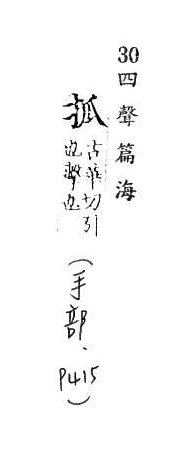 30四聲篇海
㧓
古華切引
也擊也
（手部、P415）